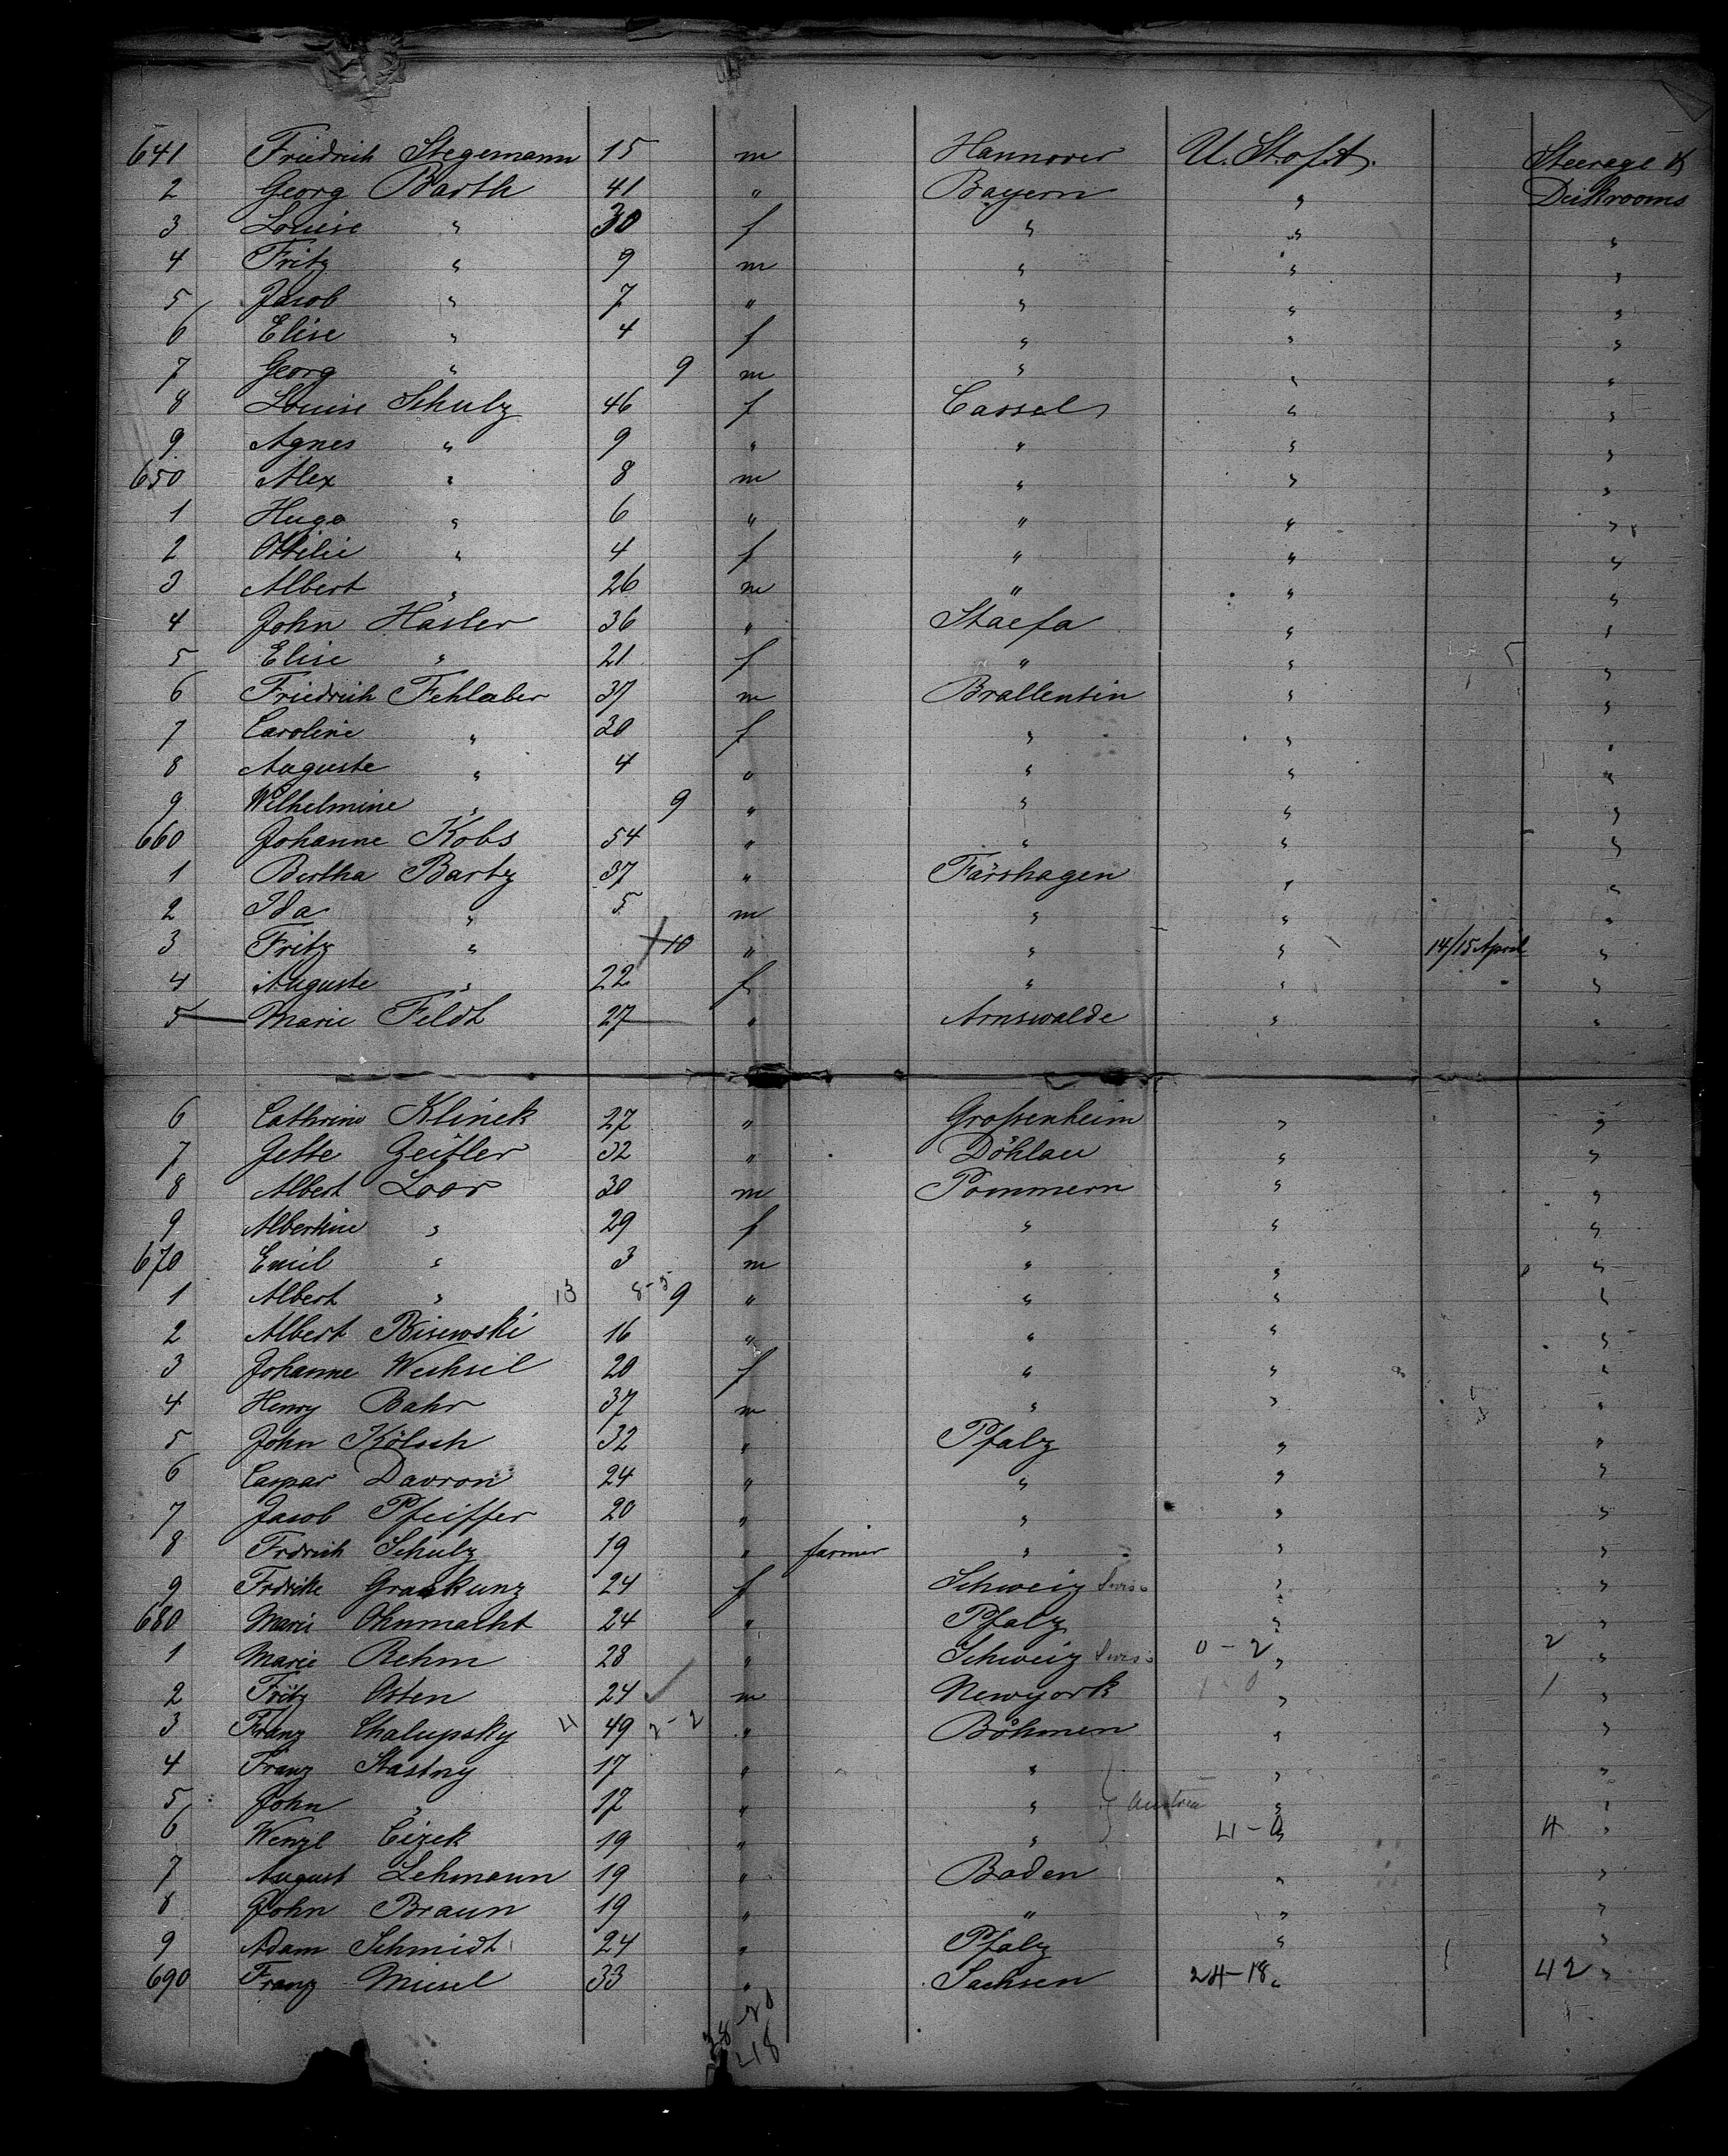 641 Friedrich Stegemann 15 m Hannover U. St. of A. Steerage &
2 Georg Barth 41 " Bayern " Deckrooms
3 Louise " 30 f " " "
4 Fritz " 9 m " " "
5 Jacob " 7 " " " "
6 Elise " 4 f " " "
7 Georg " 9 m " " "
8 Louise Schulz 46 f Cassel " "
9 Agnes " 9 " " " "
650 Alex " 8 m " " "
1 Hugo " 6 " " " "
2 Ottilie " 4 f " " "
3 Albert " 26 m " " "
4 John Hasler 36 " Staefa " "
5 Elise " 21 f " " "
6 Friedrich Fehlaber 37 m Brallentin " "
7 Caroline " 30 f " " "
8 Auguste " 4 " " " "
9 Wilhelmine " 9 " " " "
660 Johanne Kobs 54 " " " "
1 Bertha Bartz 37 " Färshagen " "
2 Ida " 5 m " " "
3 Fritz " 10 " " " 14/15 April "
4 Auguste " 22 f " " "
5 Marie Feldt 27 " Arnswalde " "
6 Cathrine Klinek 27 " Großenheim " "
7 Jette Zeitler 32 " Döhlau " "
8 Albert Loor 30 m Pommern " "
9 Albertine " 29 f " " "
670 Emil " 3 m " " "
1 Albert " 13 8-5 9 " " " "
2 Albert Bisewski 16 " " " "
3 Johanne Wechsel 20 f " " "
4 Henry Bahr 37 m " " "
5 John Kölsch 32 " Pfalz " "
6 Caspar Davron 24 " " " "
7 Jacob Pfeiffer 20 " " " "
8 Frdrich Schulz 19 " farmer " " "
9 Frdricke Graskunz 24 f Schweiz Swiss " "
680 Marie Ohnmacht 24 " Pfalz " "
1 Marie Rehm 28 " Schweiz Swiss 0-2 " 2 "
2 Fritz Osten 24 m Newyork 1-0 " 1 "
3 Franz Chalupsky 4 49 2-2 " Böhmen " "
4 Franz Stastny 17 " " " "
5 John " 17 " " Austria " "
6 Wenzl Cizek 19 " " 4-0 " 4 "
7 August Lehmann 19 " Baden " "
8 John Braun 19 " " " "
9 Adam Schmidt 24 " Pfalz " "
690 Franz Miesel 33 " Sachsen 24-18 " 42 "
28-20
48